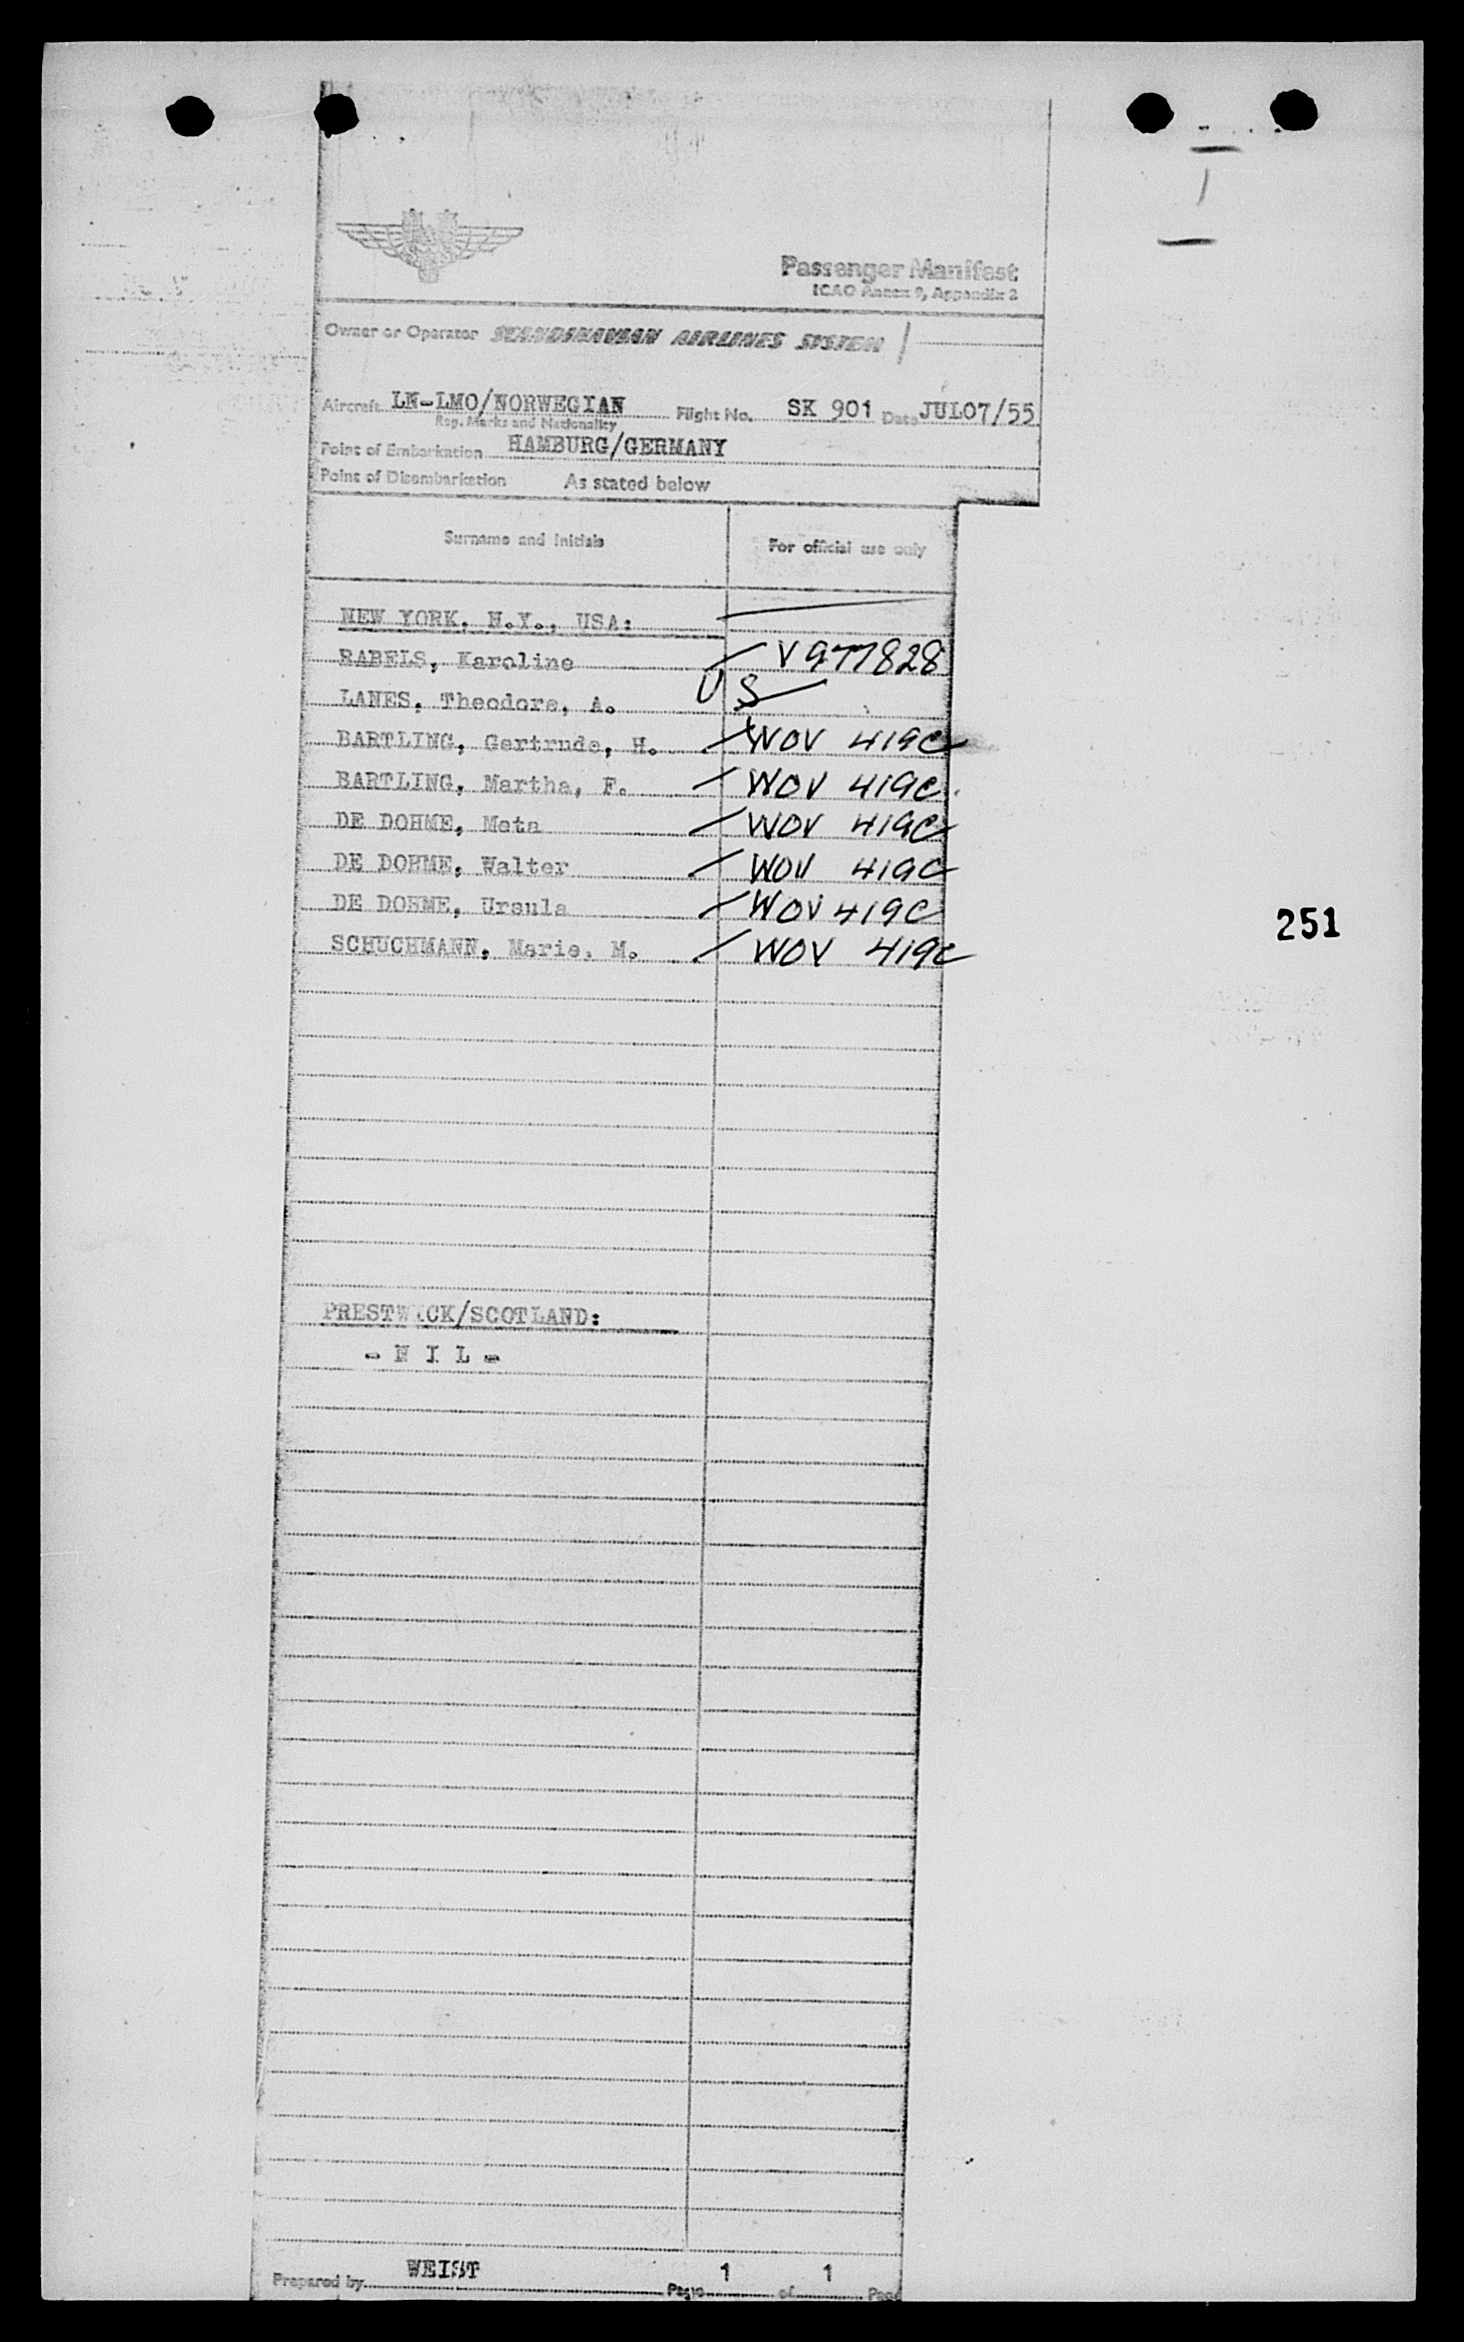 Passenger Manifest
ICAO Annex 9, Appendix 2
Owner or Operator SCANDINAVIAN AIRLINES SYSTEM
Aircraft LN-LMO/NORWEGIAN Flight No. SK 901 Date JUL07/55
Reg. Marks and Nationality
Point of Embarkation HAMBURG/GERMANY
Point of Disembarkation As stated below
Surname and Initials For official use only
NEW YORK, N.Y., USA:
RABELS, Karoline V977828
LANES, Theodore, A. US
BARTLING, Gertrude, H. WOV 419C
BARTLING, Martha, F. WOV 419C
DE DOHME, Meta WOV 419C
DE DOHME, Walter WOV 419C
DE DOHME, Ursula WOV 419C
SCHUCHMANN, Marie, M. WOV 419C
251
PRESTWICK/SCOTLAND:
- N I L -
Prepared by WEIST Page 1 of 1 Page